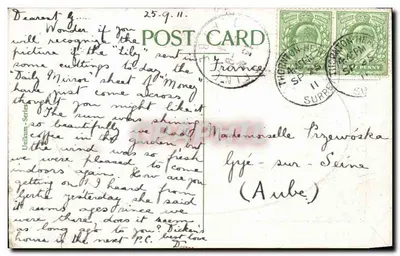 Dearest
25.9.11.
Wonder if you
will recognise the
picture in the "Lily" sent in
some cuttings today the
"Daily Mirror" sheet of "Money"
have just come across
thought you might like it
The sun was shining
so beautifully we had
coffee in the garden, but
the wind was so fresh
we were pleased to come
indoors again. How are you
getting on? I heard from
Gertie yesterday she said
it seems ages since we
were there, does it seem
as long ago to you? Dicken's
house is the next P.C. best love
POST CARD
France
Mademoiselle Przewóska
Gye-sur-Seine
(Aube)
THORNTON HEATH
SP 25
11